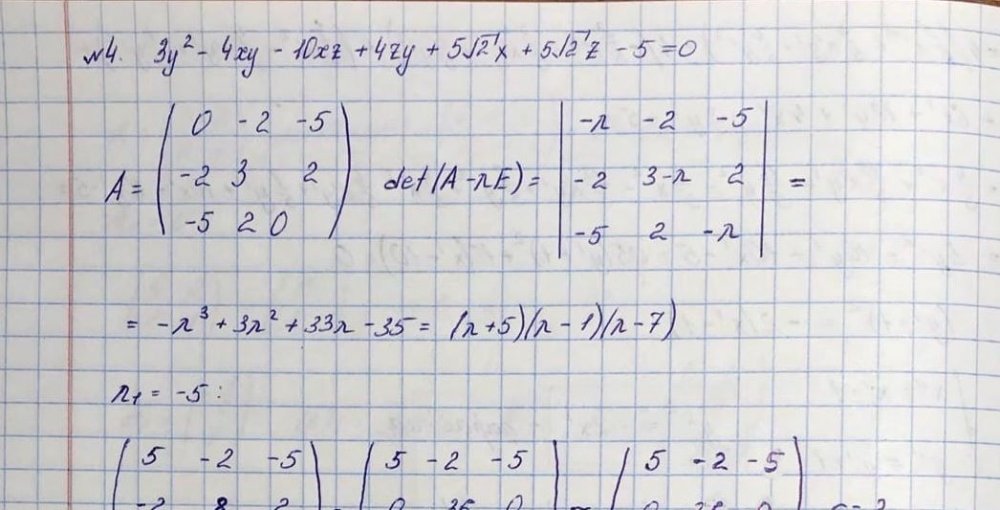 №4. 3y² - 4xy - 10xz + 4zy + 5√2 x + 5√2 z - 5 = 0
0 -2 -5 -λ -2 -5
A = -2 3 2 det(A - λE) = -2 3-λ 2 =
-5 2 0 -5 2 -λ
= -λ³ + 3λ² + 33λ - 35 = (λ+5)(λ-1)(λ-7)
λ₁ = -5:
5 -2 -5 5 -2 -5 5 -2 -5
-2 8 2